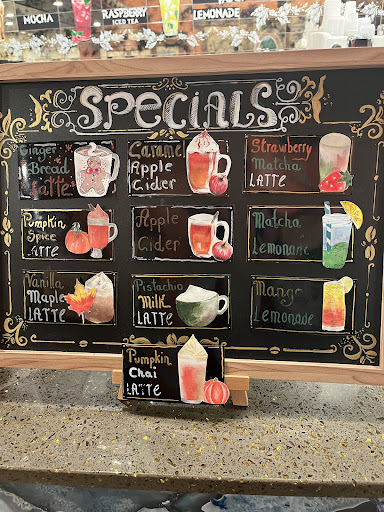 MOCHA
RASPBERRY
ICED TEA
LEMONADE
SPECIALS
Ginger
Bread
Latte
Caramel
Apple
Cider
Strawberry
Matcha
LATTE
Pumpkin
Spice
LATTE
Apple
Cider
Matcha
Lemonade
Vanilla
Maple
LATTE
Pistachio
Milk
LATTE
Mango
Lemonade
Pumpkin
Chai
LATTE